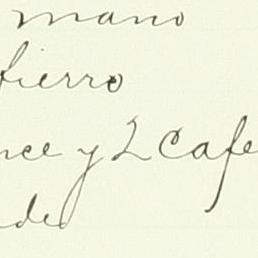 mano
fierro
nce y 2 Cafe
des